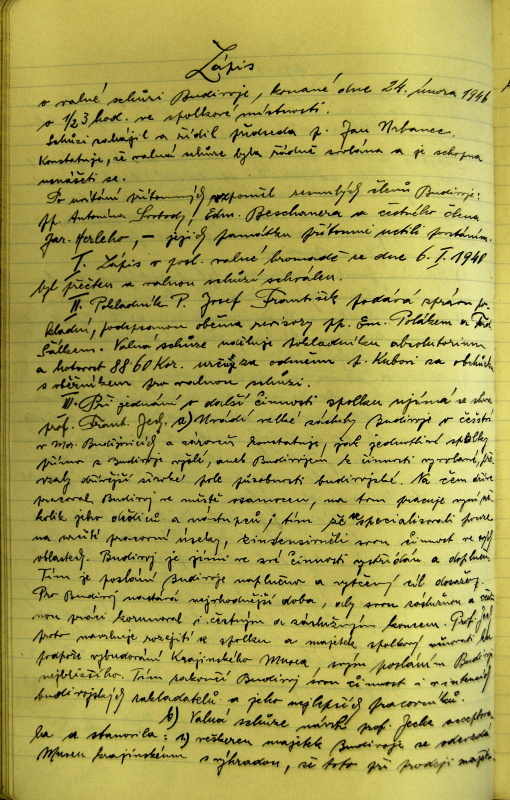 Zápis
o valné schůzi Budivoje, konané dne 24. února 1946
o 1/2 3 hod. ve spolkové místnosti.
Schůzi zahájil a řídil předseda p. Jan Vrbanec.
Konstatuje, že valná schůze byla řádně svolána a je schopna
usnášeti se.
Po uvítání přítomných vzpomněl zesnulých členů Budivoje:
pp. Antonína Svobody, Edm. Beschanera a čestného člena
Jar. Herleho, – jejich památku přítomní uctili povstáním.
I. Zápis o posl. valné hromadě ze dne 6. I. 1940
byl přečten a valnou schůzí schválen.
II. Pokladník P. Josef František podává zprávu po-
kladní, podepsanou oběma revisory pp. Em. Polákem a
Šálkem. Valná schůze uděluje pokladníku absolutorium
a hotovost 88.60 Kor. určuje za odměnu p. Kubovi za obchůzku
s oběžníkem pro valnou schůzi.
III. Při jednání o další činnosti spolku ujímá se slova
prof. Frant. Jech. a) Uvádí velké zásluhy Budivoje o češství
v Mor. Budějovicích a zároveň konstatuje, jak jednotlivé spolky
přímo z Budivoje vyšlé, aneb Budivojem k činnosti vyvolané, pře-
vzaly dřívější široké pole působnosti budivojské. Na čem dříve
pracoval Budivoj ve městě osamocen, na tom pracuje nyní ně-
kolik jeho dědiců a nástupců i tím, že se specialisovali pouze
na určité pracovní úseky, zintensivněli svou činnost ve svých
oblastech. Budivoj je jimi ve své činnosti vystřídán a doplněn.
Tím je poslání Budivoje naplněno a vytčený cíl dosažen.
Pro Budivoj nastává nejvhodnější doba, aby svou záslužnou a
nou práci korunoval i čestným a záslužným koncem. Prof. Jech
proto navrhuje rozejití se spolku a majetek spolkový věnovati ku
podpoře vybudování Krajinského Musea, svým posláním Budivoji
nejbližšího. Tím zakončí Budivoj svou činnost i v intencích
budivojských zakladatelů a jeho nejlepších pracovníků.
b) Valná schůze návrh prof. Jecha akceptova-
la a stanovila: 1) veškeren majetek Budivoje se odevzdá
Museu krajinskému s výhradou, že toto při prodeji